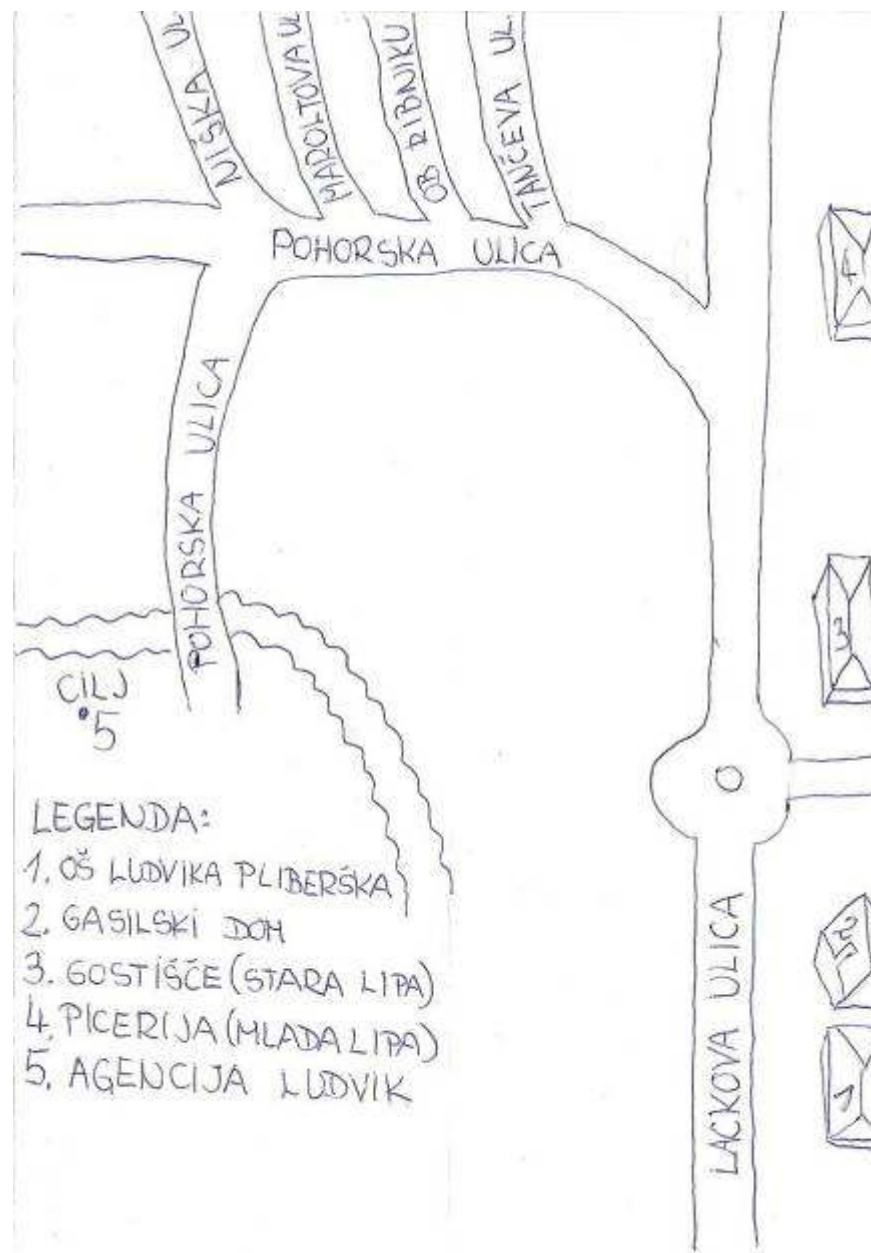 NIŠKA UL.
MAROLTOVA UL
OB RIBNIKU
TANČEVA UL.
POHORSKA ULICA
4
POHORSKA ULICA
3
CILJ
5
LEGENDA:
1. OŠ LUDVIKA PLIBERŠKA
2. GASILSKI DOM
3. GOSTIŠČE (STARA LIPA)
4. PICERIJA (MLADA LIPA)
5. AGENCIJA LUDVIK
2
LACKOVA ULICA
1